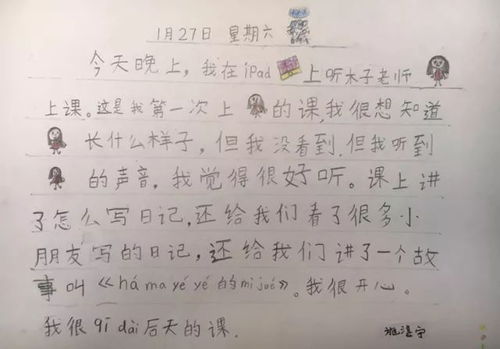 1月27日 星期六
今天晚上，我在iPad上听木子老师
上课。这是我第一次上的课我很想知道
长什么样子，但我没看到.但我听到
的声音，我觉得很好听。课上讲
了怎么写日记，还给我们看了很多小
朋友写的日记，还给我们讲了一个故
事叫《há ma yé yé 的mì jué》。我很开心。
我很qī dài后天的课.